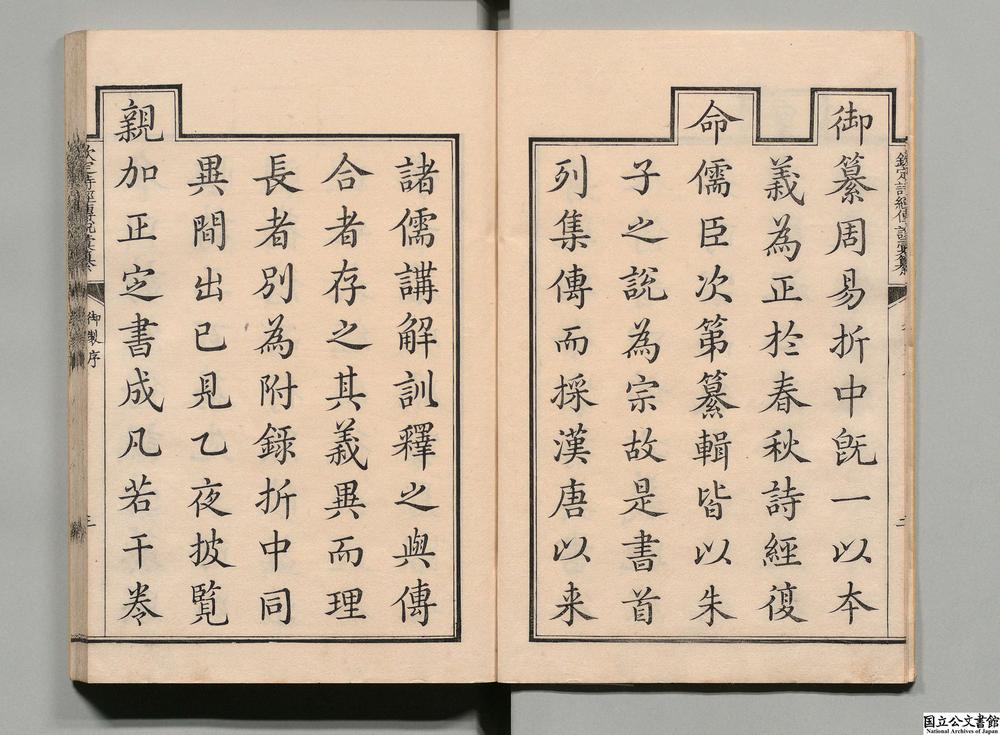 御纂周易折中旣一以本
義為正於春秋詩經復
命儒臣次第纂輯皆以朱
子之說為宗故是書首
列集傳而採漢唐以来
諸儒講解訓釋之與傳
合者存之其義異而理
長者別為附錄折中同
異間出己見乙夜披覽
親加正定書成凡若干卷
欽定詩經傳說彙纂
御製序
三
国立公文書館
National Archives of Japan